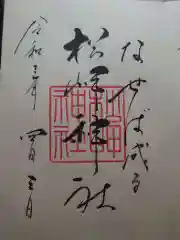 なせば成る
松岬神社
令和三年
四月三日
松岬神社